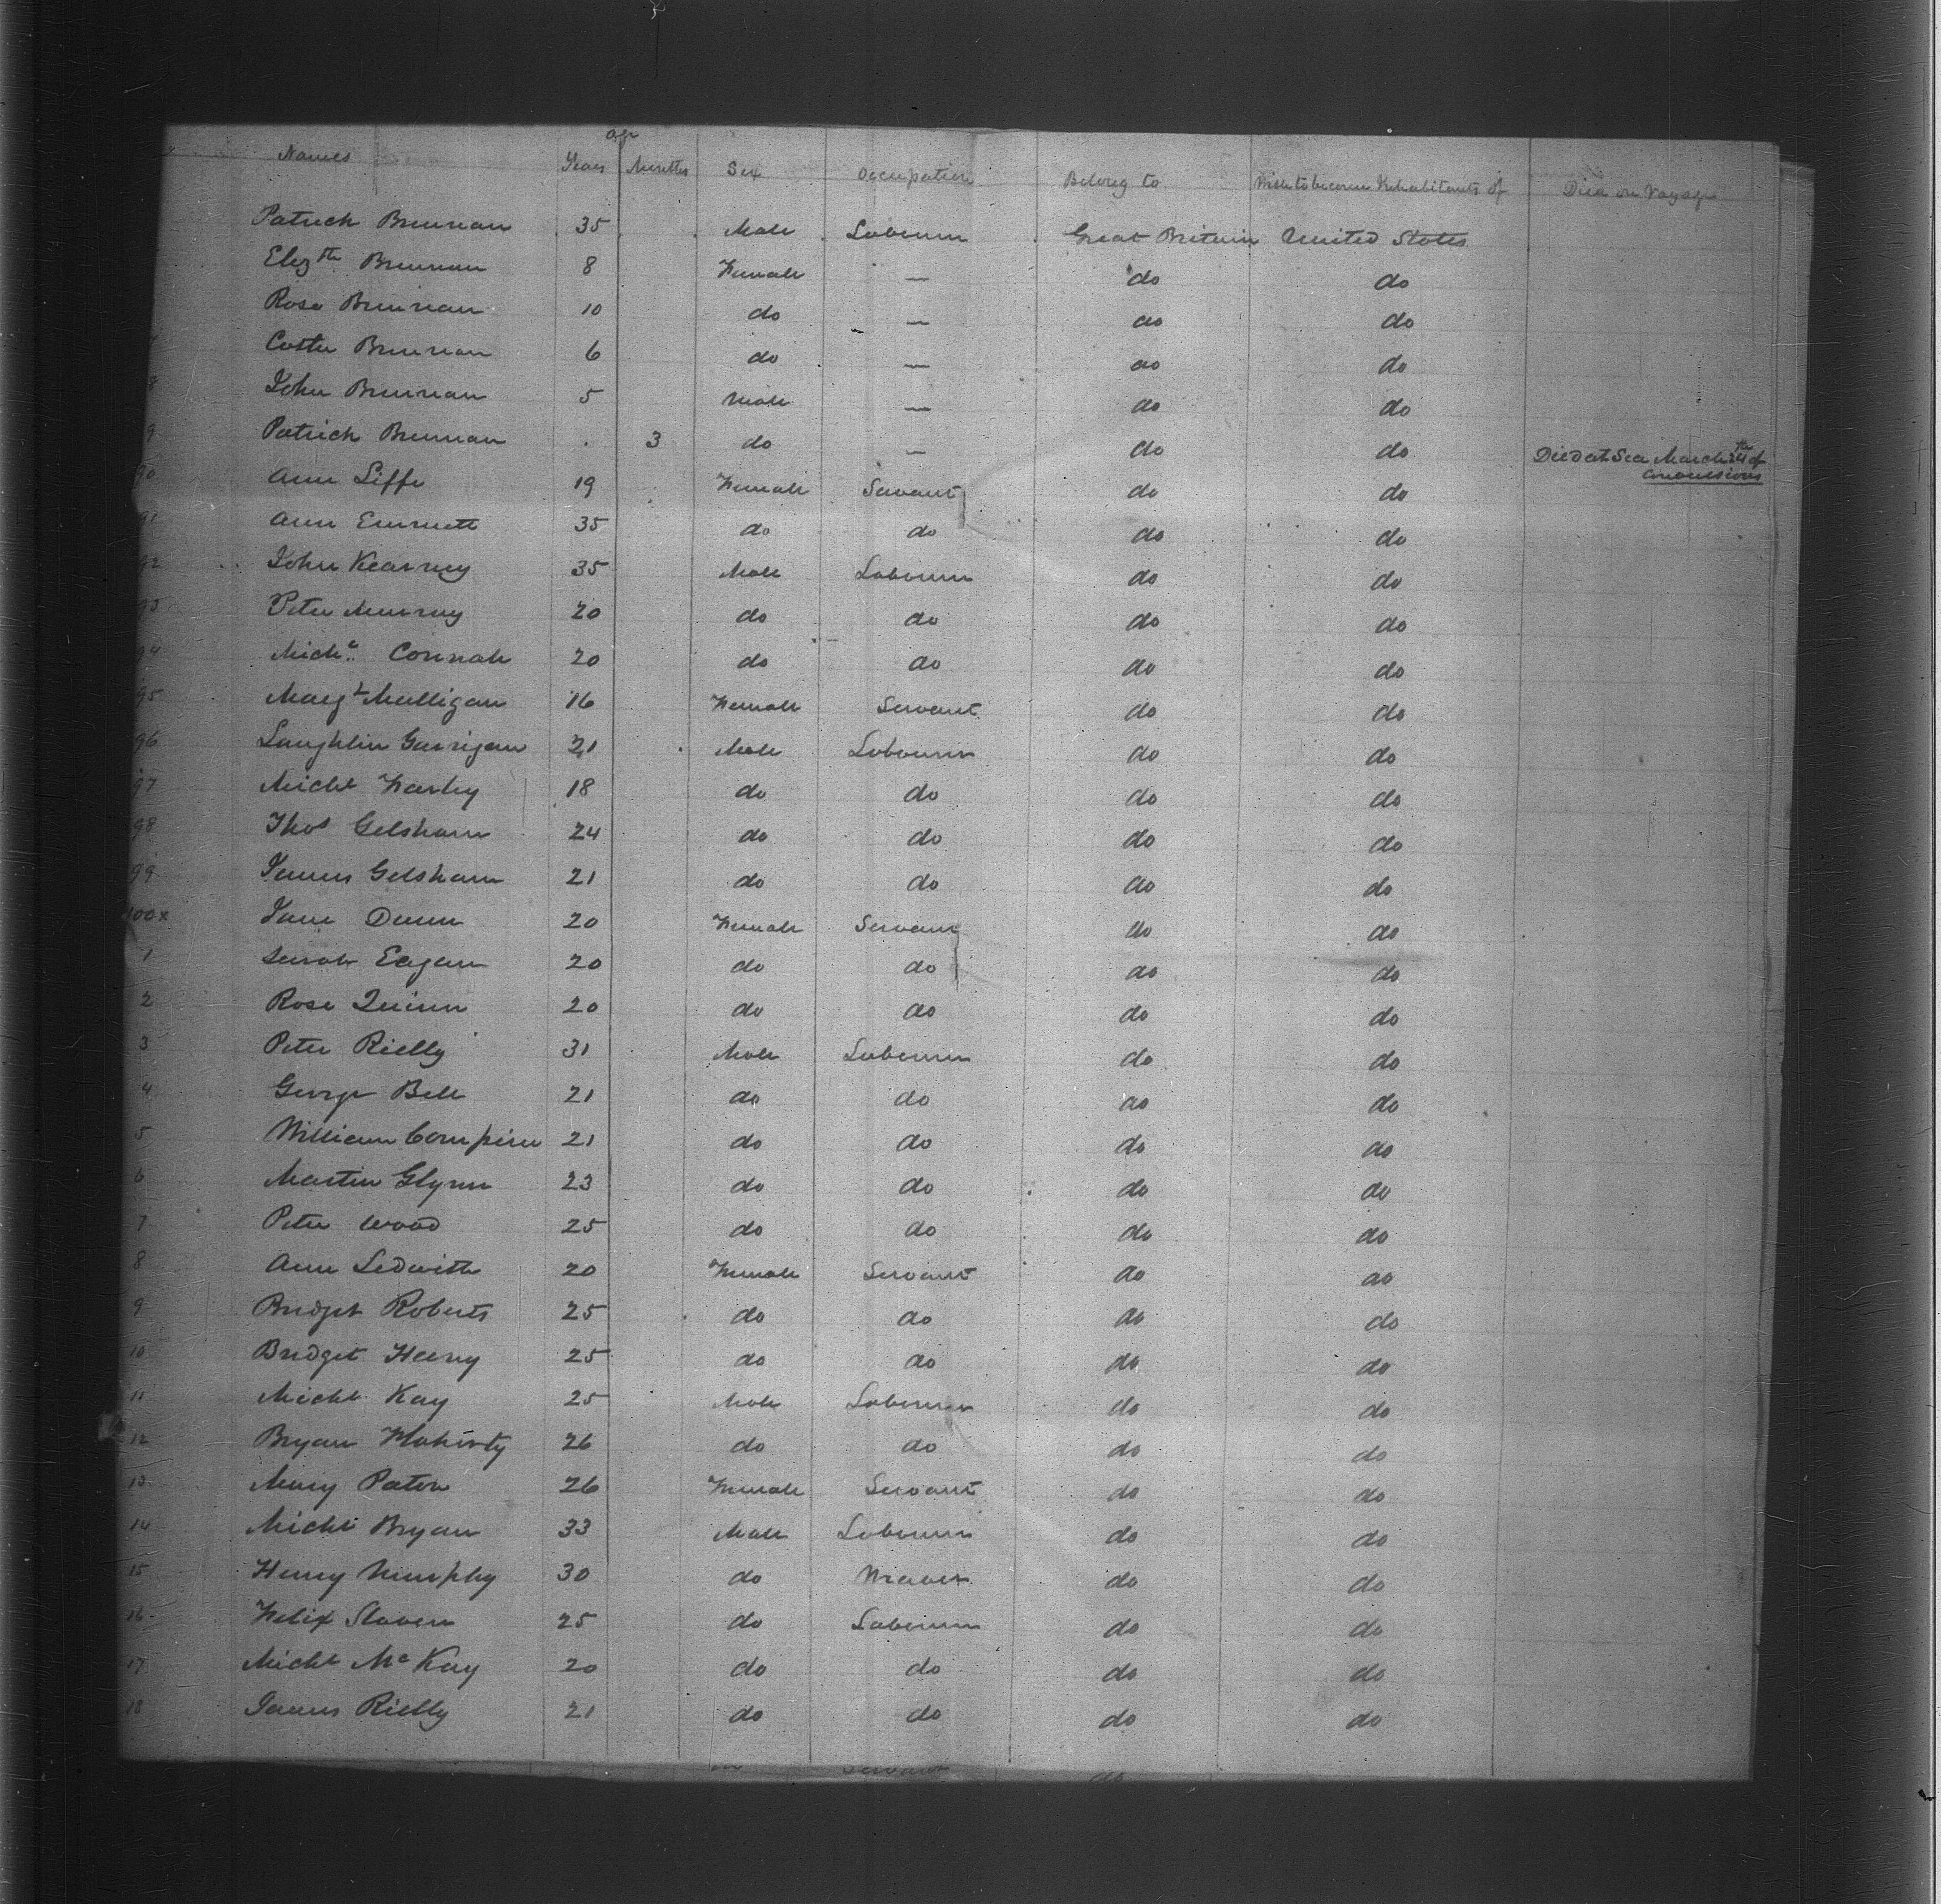 age
Names Years Months Sex Occupation Belong to Wish to become Inhabitants of Died on Voyage
Patrick Brennan 35 Male Labourer Great Britain United States
Elizth Brennan 8 Female — do do
Rose Brennan 10 do — do do
Brennan 6 do — do do
8 John Brennan 5 Male — do do
9 Patrick Brennan . 3 do — do do Died at Sea March 24th of Convulsions
90 Ann Liffe 19 Female Servant do do
91 Ann Emmett 35 do do do do
92 John Kearney 35 Male Labourer do do
93 Peter Murray 20 do do do do
94 Michl Connah 20 do do do do
95 Margt Mulligan 16 Female Servant do do
96 Laughlin Garrigan 21 Male Labourer do do
97 Michl Farley 18 do do do do
98 Thos Gelsham 24 do do do do
99 James Gelsham 21 do do do do
100x Jane Dunn 20 Female Servant do do
1 Sarah Eagan 20 do do do do
2 Rose Quinn 20 do do do do
3 Peter Rielly 31 Male Labourer do do
4 George Bell 21 do do do do
5 William 21 do do do do
6 Martin Glynn 23 do do do do
7 Peter Wood 25 do do do do
8 Ann Ledwith 20 Female Servant do do
9 Bridget Roberts 25 do do do do
10 Bridget Heery 25 do do do do
11 Michl Kay 25 Male Labourer do do
12 Bryan Flaherty 26 do do do do
13 Mary Paton 26 Female Servant do do
14 Michl Bryan 33 Male Labourer do do
15 Henry Murphy 30 do Weaver do do
16 Felix Slaven 25 do Labourer do do
17 Michl McKay 20 do do do do
18 James Rielly 21 do do do do
do Servant do